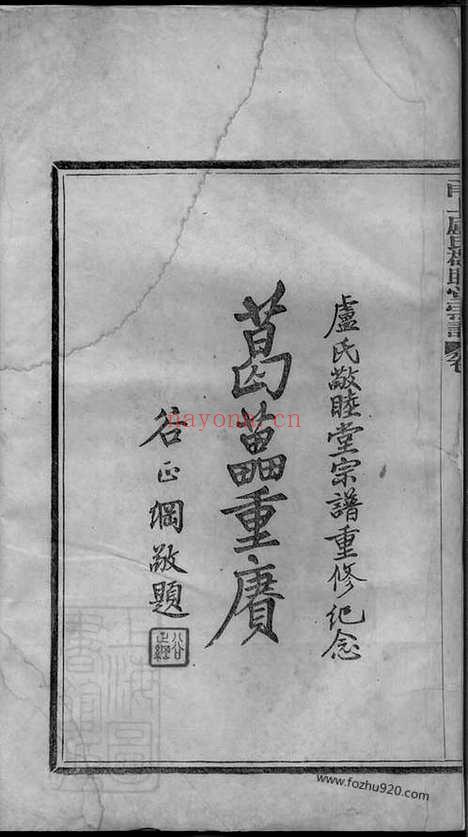 盧氏敬睦堂宗譜重修紀念
葛藟重賡
谷正綱敬題
nayona.cn
www.fozhu920.com